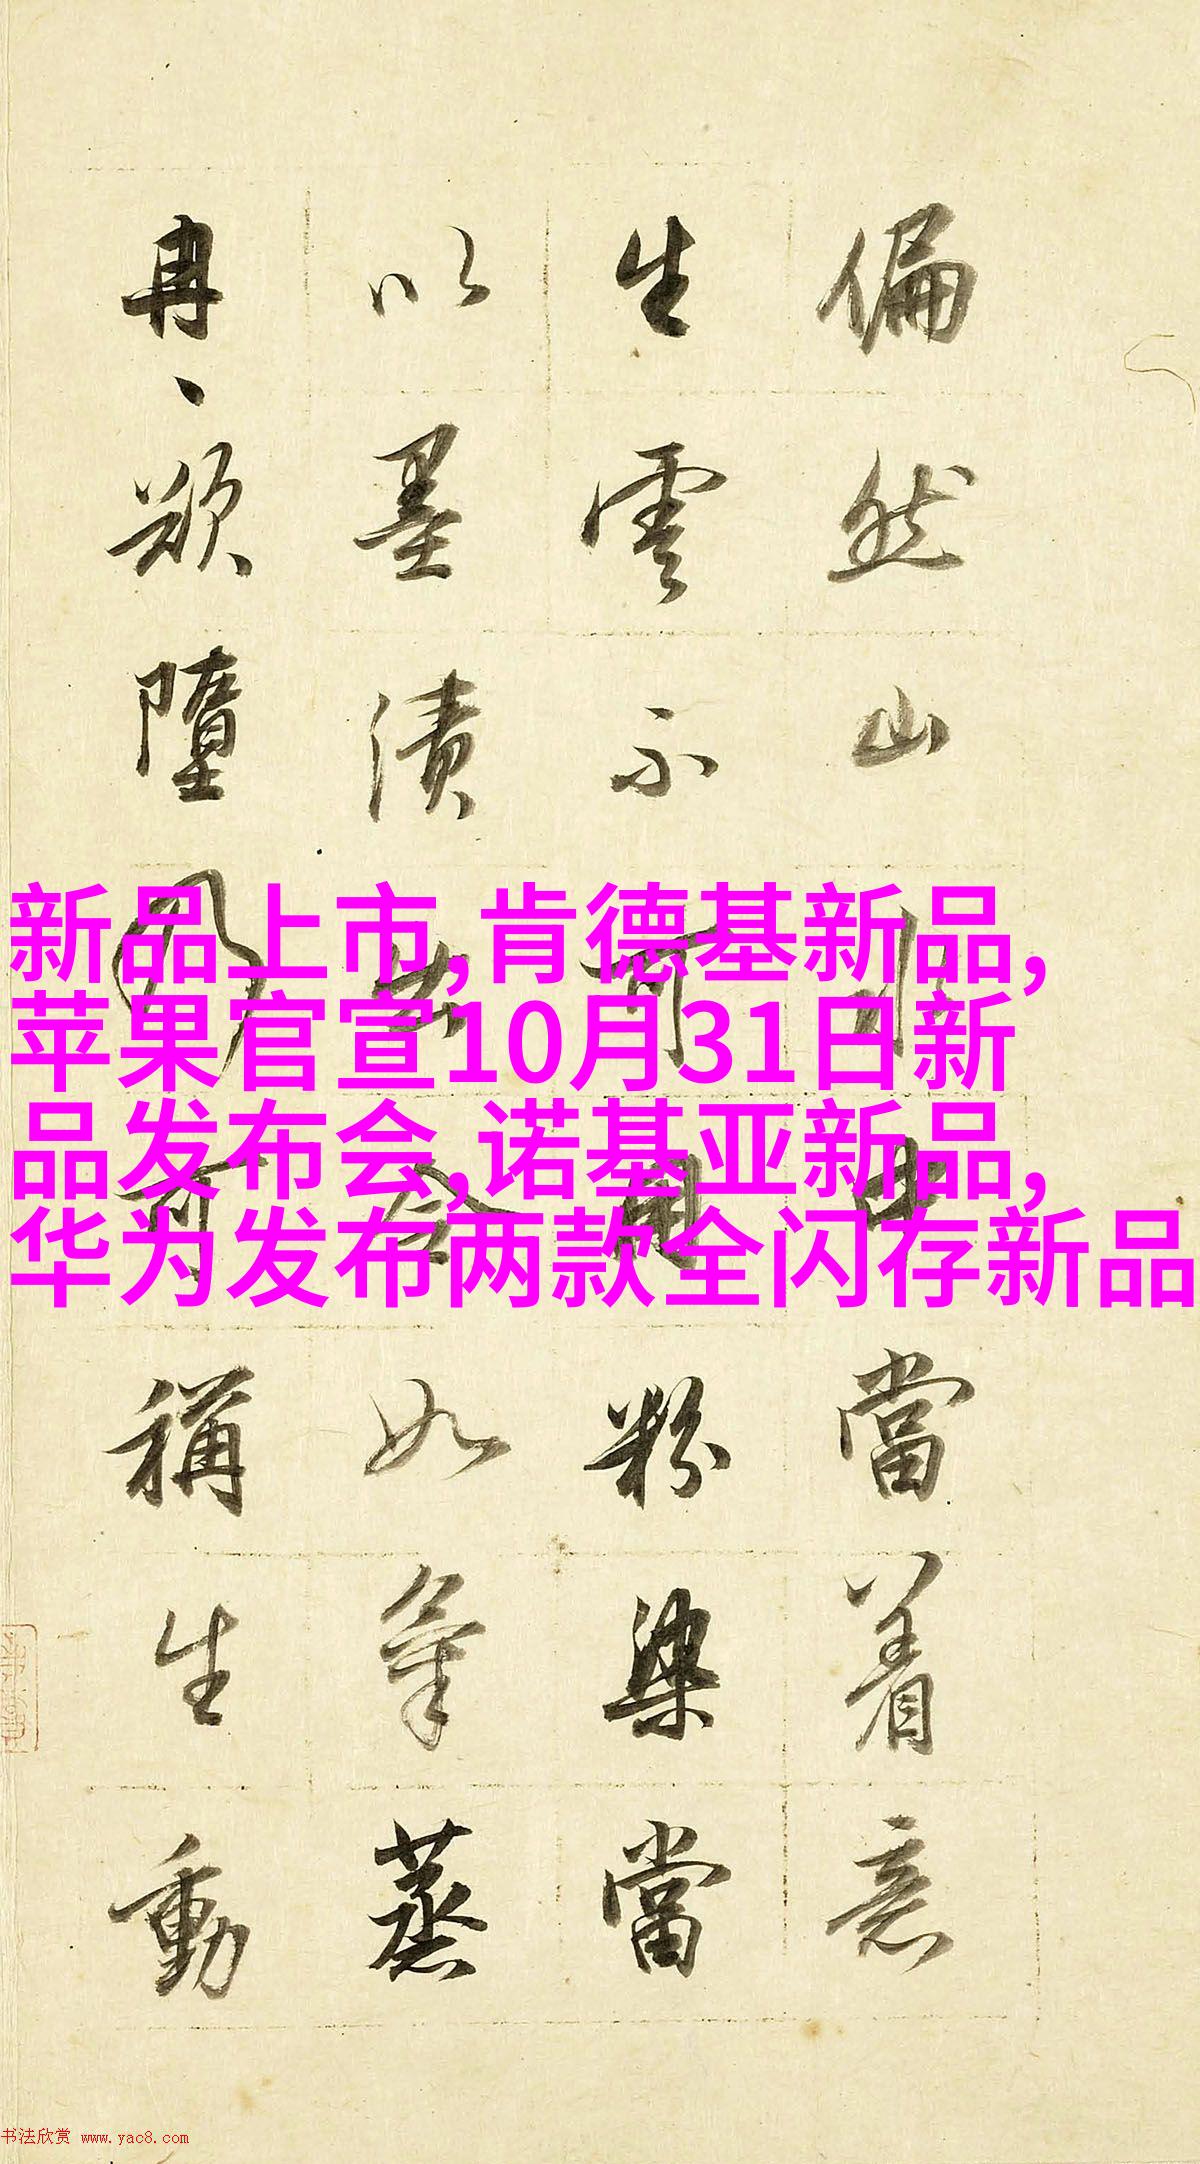 偏然山水中當着意
生雲不可用粉染當
以墨漬出令如氣蒸
冉、欲墮乃可稱生動
新品上市,肯德基新品,
苹果官宣10月31日新
品发布会,诺基亚新品,
华为发布两款全闪存新品
书法欣赏 www.yac8.com